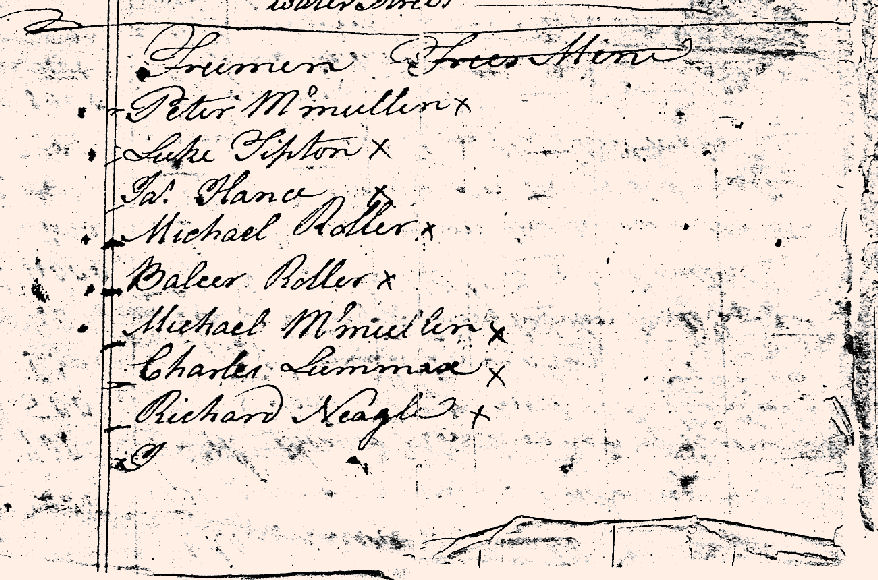 Water Street
Freemen Free Men
Peter Mcmullen x
Luke Tipton x
Jas. Hance x
Michael Roller x
Balcer Roller x
Michael Mcmullen x
Charles Lummax x
Richard Neagle x